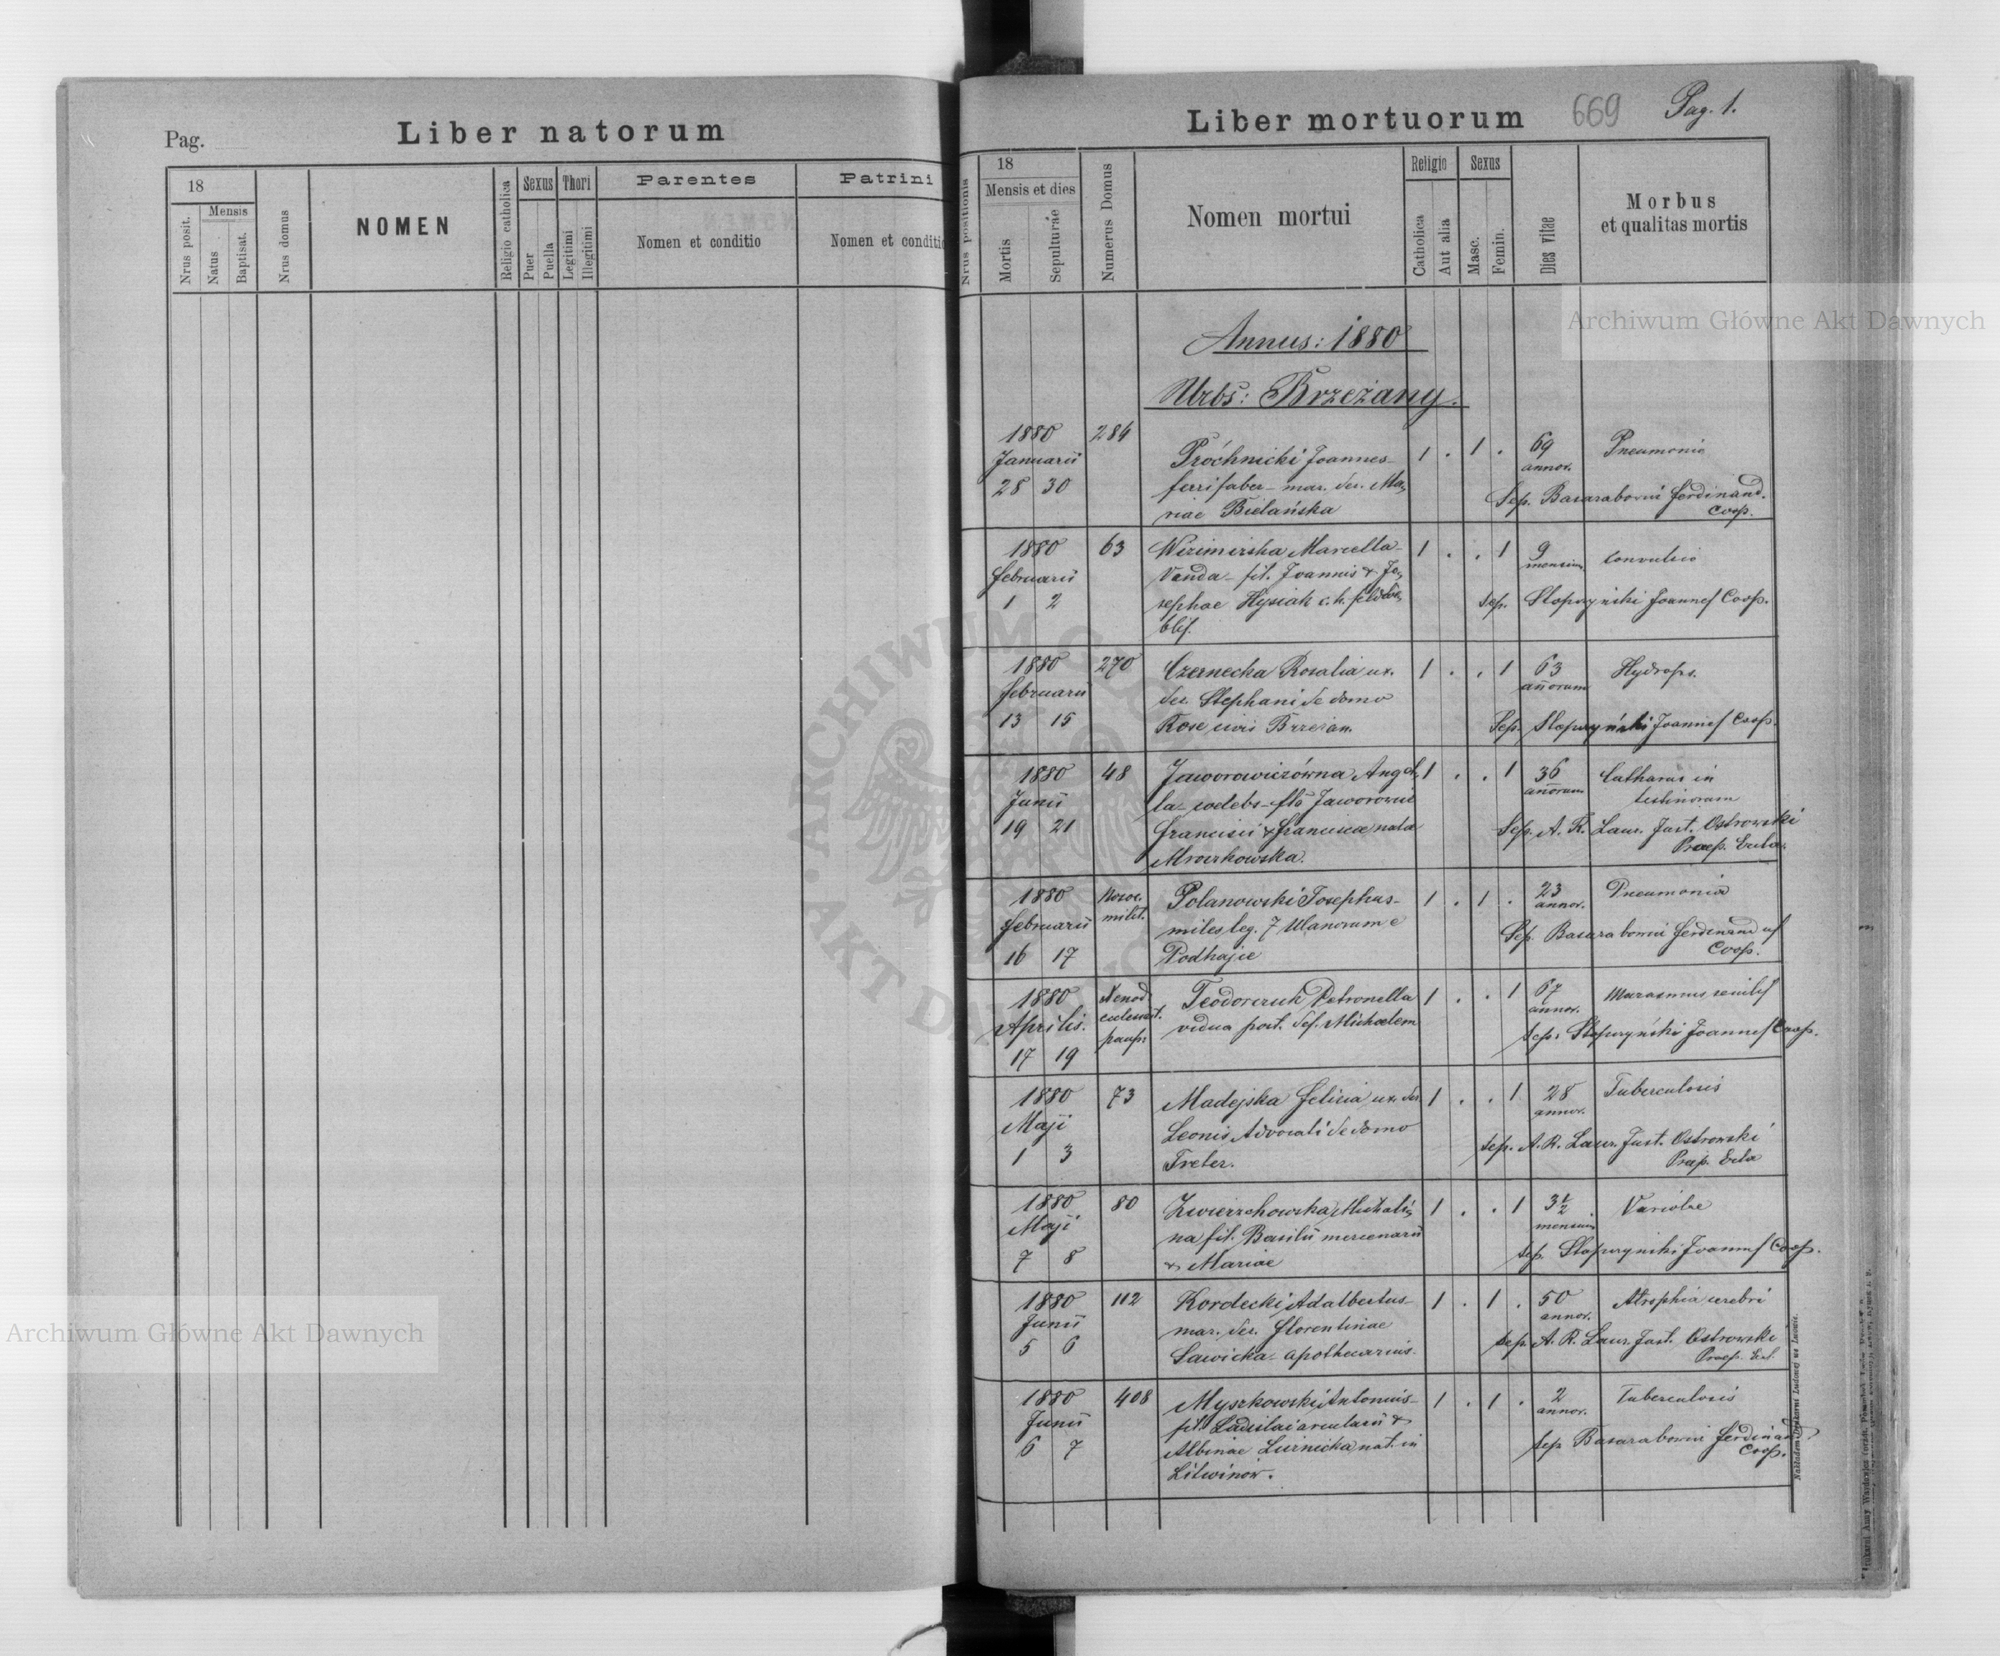 Pag.
Liber natorum
18
Nrus posit.
Mensis
Natus
Baptisat.
Nrus domus
NOMEN
Religio catholica
Sexus
Puer
Puella
Thori
Legitimi
Illegitimi
Parentes
Nomen et conditio
Patrini
Nomen et conditio
Liber mortuorum
669
Pag. 1.
Nrus positionis
18
Mensis et dies
Mortis
Sepulturae
Numerus Domus
Nomen mortui
Religio
Catholica
Aut alia
Sexus
Masc.
Femin.
Dies vitae
Morbus
et qualitas mortis
Annus: 1880
Urbs: Brzeżany.
1880
Januarii
28 30
284
Próchnicki Joannes-
ferri faber - mar. der. Ma,
riae Bielańska
1 . 1 .
69
annor.
Pneumonia
Sep. Basarabowicz Ferdinand.
Coop.
1880
Februarii
1 2
63
Wizimirska Marcella-
Vanda - fil. Joannis & Jo,
sephae Hysiak c. k.
1 . . 1
9
mensium
Convulsio
sep. Słopczyński Joannes Coop.
1880
Februarii
13 15
270
Czernecka Rosalia ux.
der. Stephani de domo
Kose civis Brzeżan.
1 . . 1
63
anorum
Hydrops.
Sep. Słopczyński Joannes Coop.
1880
Junii
19 21
48
Jaworowiczówna Ange,
la - coelebs - Jaworowicz
Francisci & Francisca nata
Mroczkowska.
1 . . 1
36
anorum
Catharus in
testinorum
Sep. A. R. Laur. Just. Ostrowski
Praep. Ecla.
1880
Februarii
16 17
milit.
Polanowski Josephus-
miles leg. 7 Ulanorum e
Podhajce
1 . 1 .
23
annor.
Pneumonia
Sep. Basarabowicz Ferdinandus
Coop.
1880
Aprilis.
17 19
Xenod.
paup.
Teodorczuk Petronella
vidua post. def. Michaelem
1 . . 1
67
annor.
Marasmus senilis
sep. Słopczyński Joannes Coop.
1880
Maji
1 3
73
Madejska Felicia ux. der
Leonis Advocati de domo
Treter.
1 . . 1
28
annor.
Tuberculosis
sep. A. R. Laur. Just. Ostrowski
Praep. Ecla
1880
Maji
7 8
80
Zwierzchowska Michali,
na fil. Basilii mercenarii
& Mariae
1 . . 1
3 1/2
mensium
Variolae
sep. Słopczyński Joannes Coop.
1880
Junii
5 6
112
Kordecki Adalbertus-
mar. der. Florentinae
Sawicka - apothecarius.
1 . 1 .
50
annor.
Atrophia cerebri
sep. A. R. Laur. Just. Ostrowski
Praep. Ecl.
1880
Junii
6 7
408
Myszkowski Antonius-
fil. Ladislai arcularii &
Albinae Lucznicka nat. in
Litwinów.
1 . 1 .
2
annor.
Tuberculosis
sep Basarabowicz Ferdinand
Coop.
Nakładem Drukarni Ludowej we Lwowie.
Archiwum Główne Akt Dawnych
Archiwum Główne Akt Dawnych